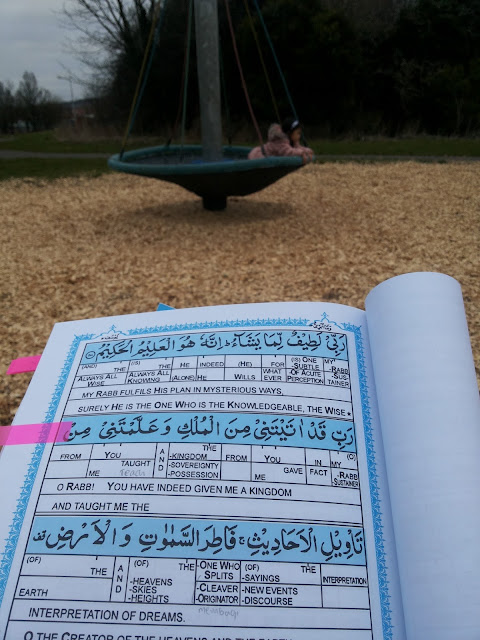 رَبِّیْ لَطِیْفٌ لِّمَا یَشَآءُ ؕ اِنَّهٗ هُوَ الْعَلِیْمُ الْحَكِیْمُ
(AND) THE (IS) THE HE INDEED (HE) FOR (IS) ONE MY
ALWAYS ALL ALWAYS ALL (ALONE) HE WILLS WHAT -SUBTLE -RABB
WISE KNOWING EVER -OF ACUTE -SUS
PERCEPTION TAINER
MY RABB FULFILS HIS PLAN IN MYSTERIOUS WAYS,
SURELY HE IS THE ONE WHO IS THE KNOWLEDGEABLE, THE WISE •
رَبِّ قَدْ اٰتَیْتَنِیْ مِنَ الْمُلْكِ وَ عَلَّمْتَنِیْ مِنْ
FROM YOU AND THE FROM YOU IN MY
TAUGHT -KINGDOM GAVE FACT -RABB
ME teach -SOVEREIGNTY ME -SUSTAINER
-POSSESSION
O RABB! YOU HAVE INDEED GIVEN ME A KINGDOM
AND TAUGHT ME THE
تَاْوِیْلِ الْاَحَادِیْثِ ۚ فَاطِرَ السَّمٰوٰتِ وَ الْاَرْضِ
(OF) THE AND (OF) THE -ONE WHO SPLITS (OF) THE INTERPRETATION
EARTH -HEAVENS -CLEAVER -SAYINGS
-SKIES -ORIGINATOR -NEW EVENTS
-HEIGHTS -DISCOURSE
INTERPRETATION OF DREAMS.
O THE CREATOR OF THE HEAVENS AND THE EARTH